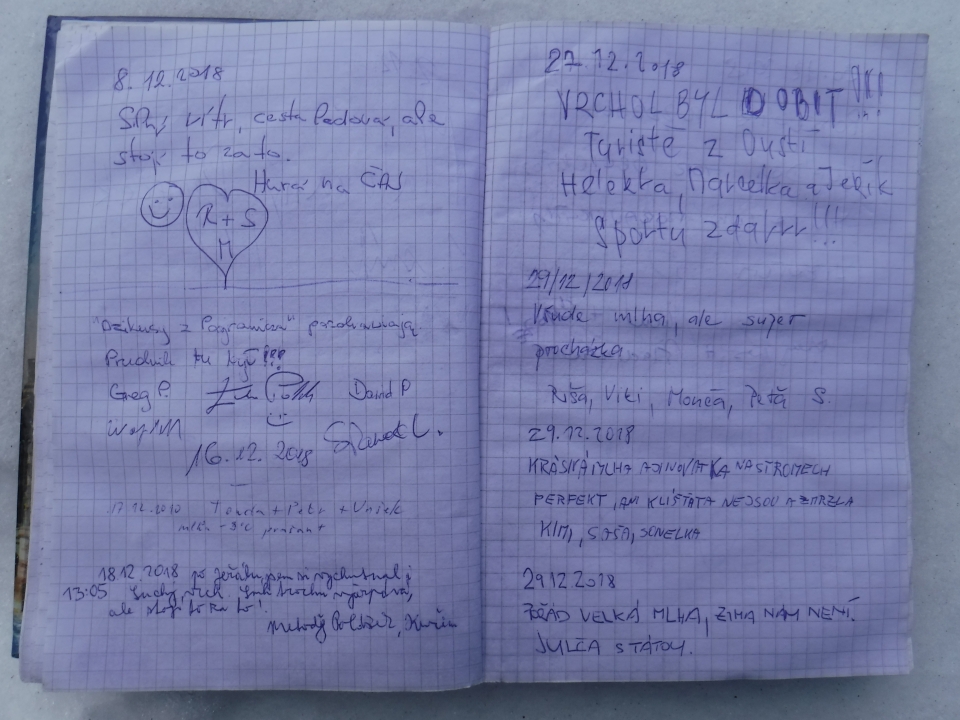 8.12.2018
Silný vítr, cesta ledová, ale
stojí to za to.
Hurá na ČAJ
R + S
M
"Dzikusy z Pogranicza" pozdrawiają
Prudnik tu był!!!
Greg P. David P
16.12.2018
17.12.2018 Tonda + Petr + Vašek
mlha -3°C
18.12.2018 po
13:05 Suchý vrch. trochu
ale stojí to za to!
27.12.2018
VRCHOL BYL DOBIT!!!
Turisté z Ústí
Helekta, Marcelka a Jeník
Sportu zdarrr!!!
29/12/2018
Všude mlha, ale super
procházka
Ríša, Viki, Monča, Petá S.
29.12.2018
KRÁSNÁ MLHA A JINOVATKA NA STROMECH
PERFEKT, ANI KLÍŠTATA NEJSOU A ZMRZLA
KIM, SAŠA, SONELKA
29.12.2018
POŘÁD VELKÁ MLHA, ZIMA NÁM NENÍ.
JULČA S TÁTOU.